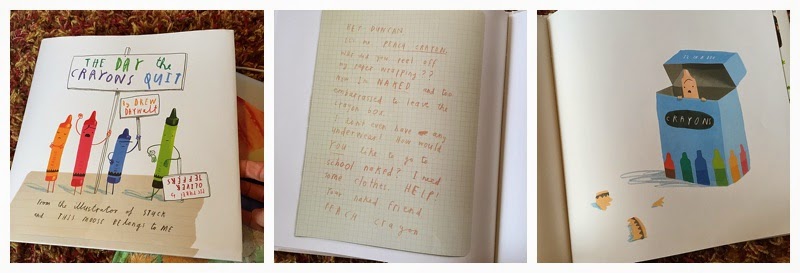 THE DAY the
CRAYONS QUIT
by DREW
DAYWALT
PICTURES by
OLIVER
JEFFERS
from the illustrator of STUCK
and THIS MOOSE BElongs to ME
HEY DUNCAN,
it's me, PEACH CRAYON.
WHY did you peel off
my paper wrapping??
Now I'm NAKED and too
embarrassed to leave the
crayon box.
I don't even have any
underwear! How would
YOU like to go to
school naked? I need
some clothes. HELP!
Your naked friend,
PEACH crayon
CRAYONS